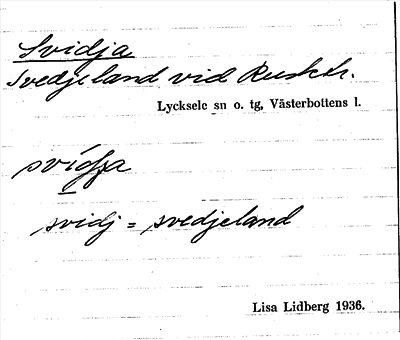 Svidja
Svedjeland vid Rusktr.
Lycksele sn o. tg, Västerbottens l.
svidja
svidj = svedjeland
Lisa Lidberg 1936.